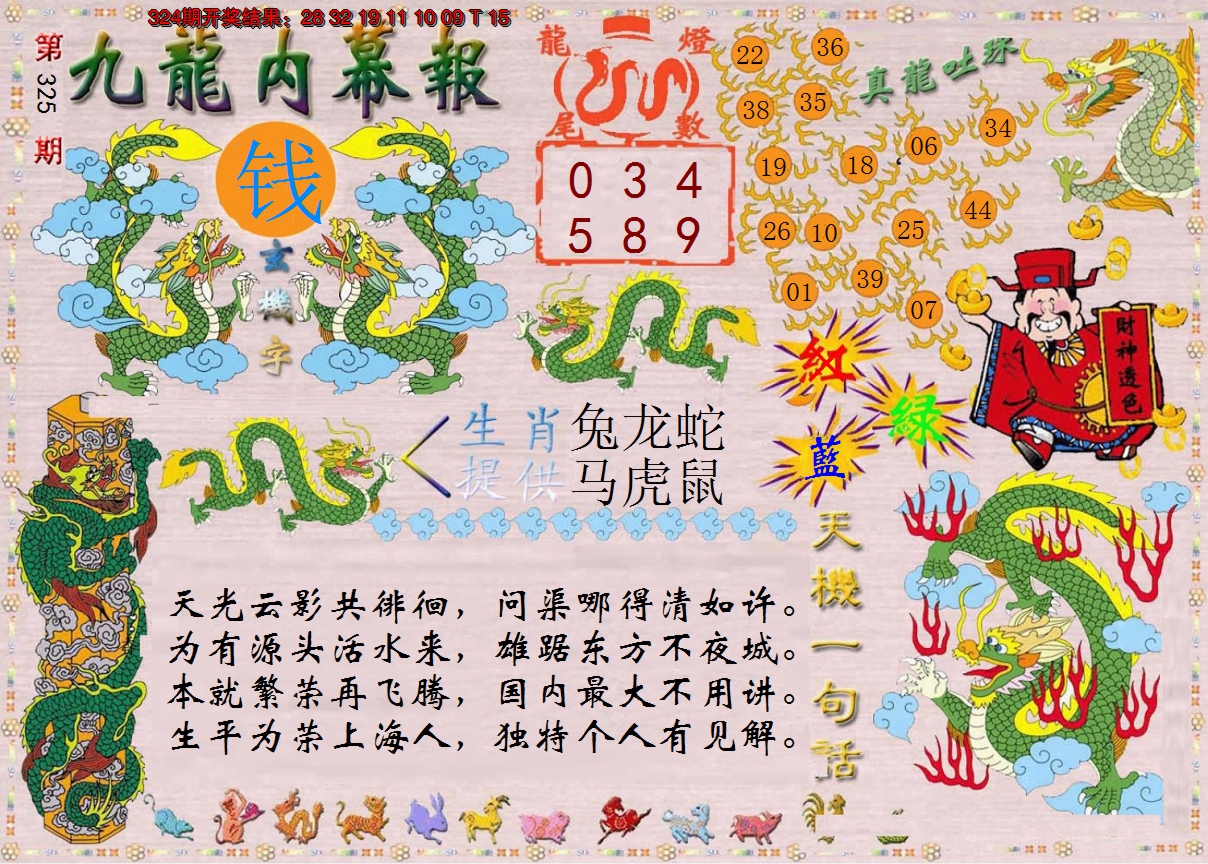 324期开奖结果：28 32 19 11 10 09 T 15
第325期
九龍内幕報
钱
玄機字
龍燈
尾數
0 3 4
5 8 9
真龍吐珠
22 36
38 35
19 18 06 34
26 10 25 44
01 39 07
紅
綠
藍
財神透色
生肖提供
兔龙蛇
马虎鼠
天機一句話
天光云影共徘徊，问渠哪得清如许。
为有源头活水来，雄踞东方不夜城。
本就繁荣再飞腾，国内最大不用讲。
生平为荣上海人，独特个人有见解。